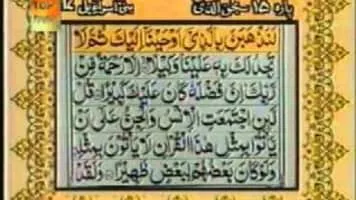 پارہ ۱۵ سبحٰن الذی
بنی اسرآءیل ۱۷
لَنَذْهَبَنَّ بِالَّذِیْۤ اَوْحَیْنَاۤ اِلَیْكَ ثُمَّ لَا
تَجِدُ لَكَ بِهٖ عَلَیْنَا وَكِیْلًا اِلَّا رَحْمَةً مِّنْ
رَّبِّكَ اِنَّ فَضْلَهٗ كَانَ عَلَیْكَ كَبِیْرًا قُلْ
لَّىِٕنِ اجْتَمَعَتِ الْاِنْسُ وَالْجِنُّ عَلٰۤی اَنْ
یَّاْتُوْا بِمِثْلِ هٰذَا الْقُرْاٰنِ لَا یَاْتُوْنَ بِمِثْلِهٖ
وَلَوْ كَانَ بَعْضُهُمْ لِبَعْضٍ ظَهِیْرًا وَلَقَدْ